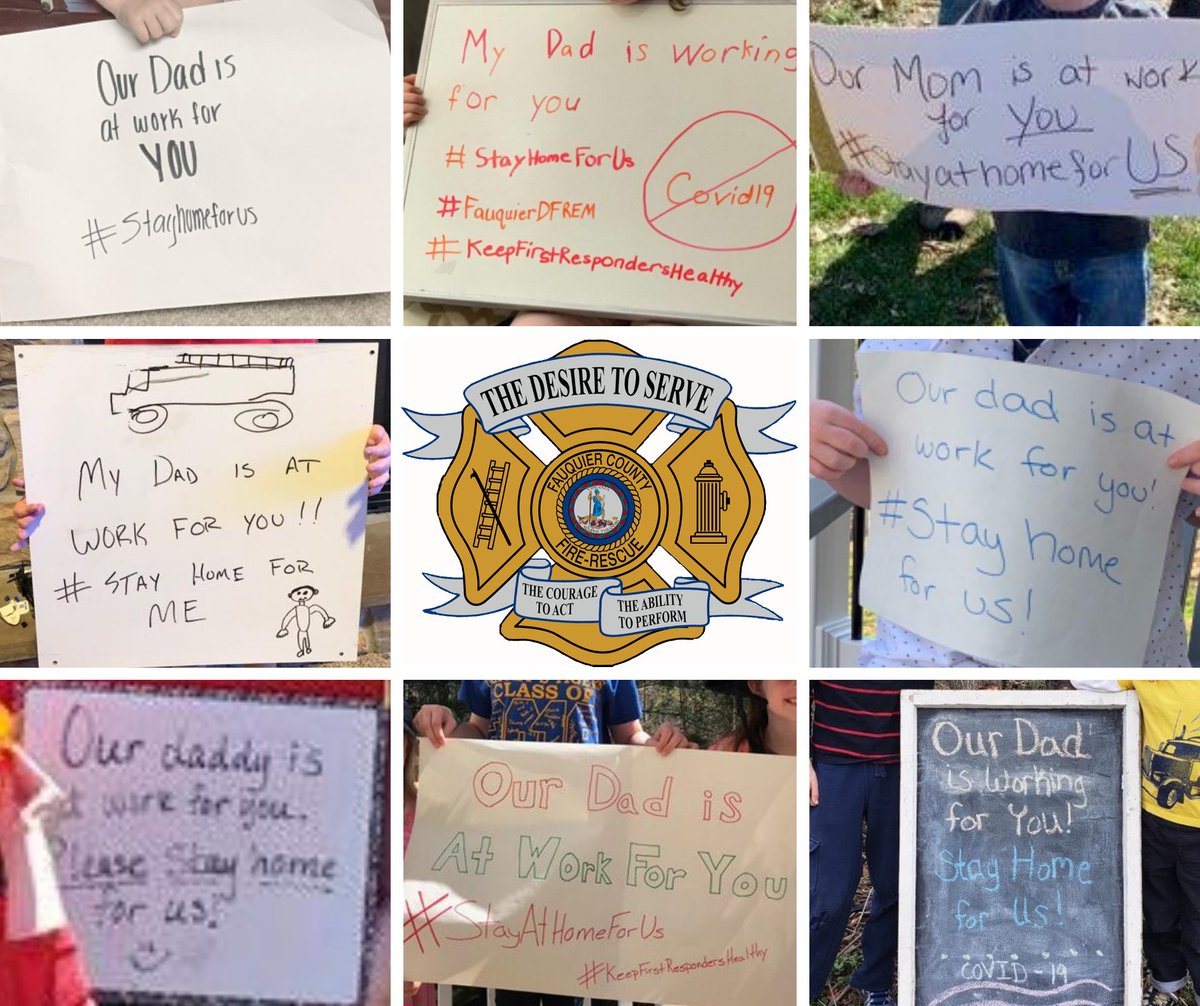 Our Dad is
at work for
YOU
#Stayhomeforus
My Dad is working
for you
#StayHomeForUs
Covid19
#FauquierDFREM
#KeepFirstRespondersHealthy
Our Mom is at work
for YOU
#Stayathomeforus
My Dad is at
work for you!!
# Stay home for
me
THE DESIRE TO SERVE
FAUQUIER COUNTY
FIRE-RESCUE
THE COURAGE
TO ACT
THE ABILITY
TO PERFORM
Our dad is at
work for you!
#Stay home
for us!
Our daddy is
at work for you.
Please stay home
for us!
CLASS OF
Our Dad is
At Work For You
#StayAtHomeForUs
#KeepFirstRespondersHealthy
Our Dad
is Working
for You!
Stay Home
for Us!
COVID-19